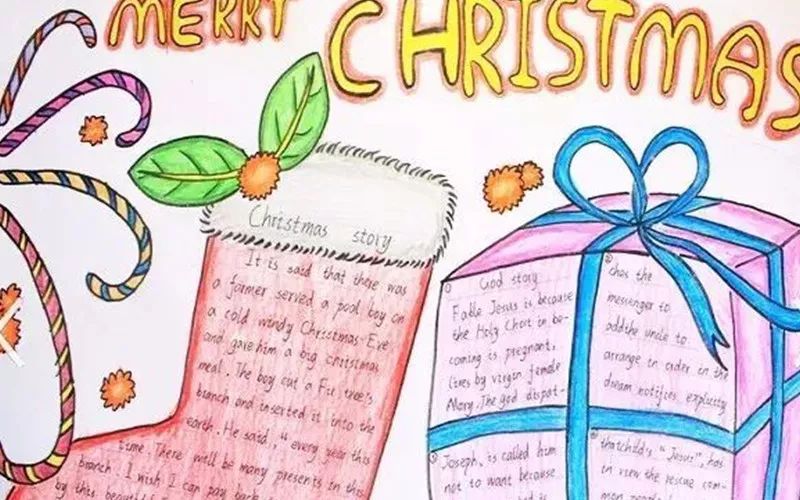 MERRY CHRISTMAS
Christmas story
It is said that there was
a farmer served a pool boy on
a cold windy Christmas Eve
and gave him a big christmas
meal. The boy cut a Fir tree's
branch and inserted it into the
earth. He said, "every year this
time. There will be many presents in this
branch. I wish I can pay back
by this
① God story
Fable Jesus is because
the Holy Ghost in be-
coming is pregnant,
lives by virgin female
Mary. The god dispat-
② ches the
messenger to
add the uncle to
arrange in order in the
dream notifies explicitly
③ Joseph, is called him
not to want because
④ that child's "Jesus", has
in view the rescue com-